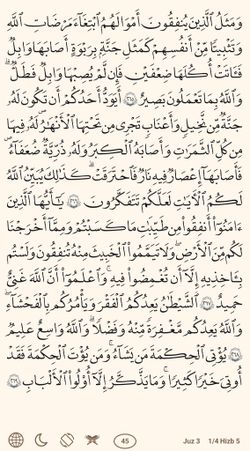 وَمَثَلُ ٱلَّذِينَ يُنفِقُونَ أَمْوَٰلَهُمُ ٱبْتِغَآءَ مَرْضَاتِ ٱللَّهِ
وَتَثْبِيتًا مِّنْ أَنفُسِهِمْ كَمَثَلِ جَنَّةٍۭ بِرَبْوَةٍ أَصَابَهَا وَابِلٌ
فَـَٔاتَتْ أُكُلَهَا ضِعْفَيْنِ فَإِن لَّمْ يُصِبْهَا وَابِلٌ فَطَلٌّ ۗ
وَٱللَّهُ بِمَا تَعْمَلُونَ بَصِيرٌ ٢٦٥ أَيَوَدُّ أَحَدُكُمْ أَن تَكُونَ لَهُۥ
جَنَّةٌ مِّن نَّخِيلٍ وَأَعْنَابٍ تَجْرِى مِن تَحْتِهَا ٱلْأَنْهَٰرُ لَهُۥ فِيهَا
مِن كُلِّ ٱلثَّمَرَٰتِ وَأَصَابَهُ ٱلْكِبَرُ وَلَهُۥ ذُرِّيَّةٌ ضُعَفَآءُ
فَأَصَابَهَآ إِعْصَارٌ فِيهِ نَارٌ فَٱحْتَرَقَتْ ۗ كَذَٰلِكَ يُبَيِّنُ ٱللَّهُ
لَكُمُ ٱلْـَٔايَٰتِ لَعَلَّكُمْ تَتَفَكَّرُونَ ٢٦٦ يَٰٓأَيُّهَا ٱلَّذِينَ
ءَامَنُوٓا۟ أَنفِقُوا۟ مِن طَيِّبَٰتِ مَا كَسَبْتُمْ وَمِمَّآ أَخْرَجْنَا
لَكُم مِّنَ ٱلْأَرْضِ ۖ وَلَا تَيَمَّمُوا۟ ٱلْخَبِيثَ مِنْهُ تُنفِقُونَ وَلَسْتُم
بِـَٔاخِذِيهِ إِلَّآ أَن تُغْمِضُوا۟ فِيهِ ۚ وَٱعْلَمُوٓا۟ أَنَّ ٱللَّهَ غَنِىٌّ
حَمِيدٌ ٢٦٧ ٱلشَّيْطَٰنُ يَعِدُكُمُ ٱلْفَقْرَ وَيَأْمُرُكُم بِٱلْفَحْشَآءِ ۖ
وَٱللَّهُ يَعِدُكُم مَّغْفِرَةً مِّنْهُ وَفَضْلًا ۗ وَٱللَّهُ وَٰسِعٌ عَلِيمٌ
٢٦٨ يُؤْتِى ٱلْحِكْمَةَ مَن يَشَآءُ ۚ وَمَن يُؤْتَ ٱلْحِكْمَةَ فَقَدْ
أُوتِىَ خَيْرًا كَثِيرًا ۗ وَمَا يَذَّكَّرُ إِلَّآ أُو۟لُوا۟ ٱلْأَلْبَٰبِ ٢٦٩
45 Juz 3 1/4 Hizb 5